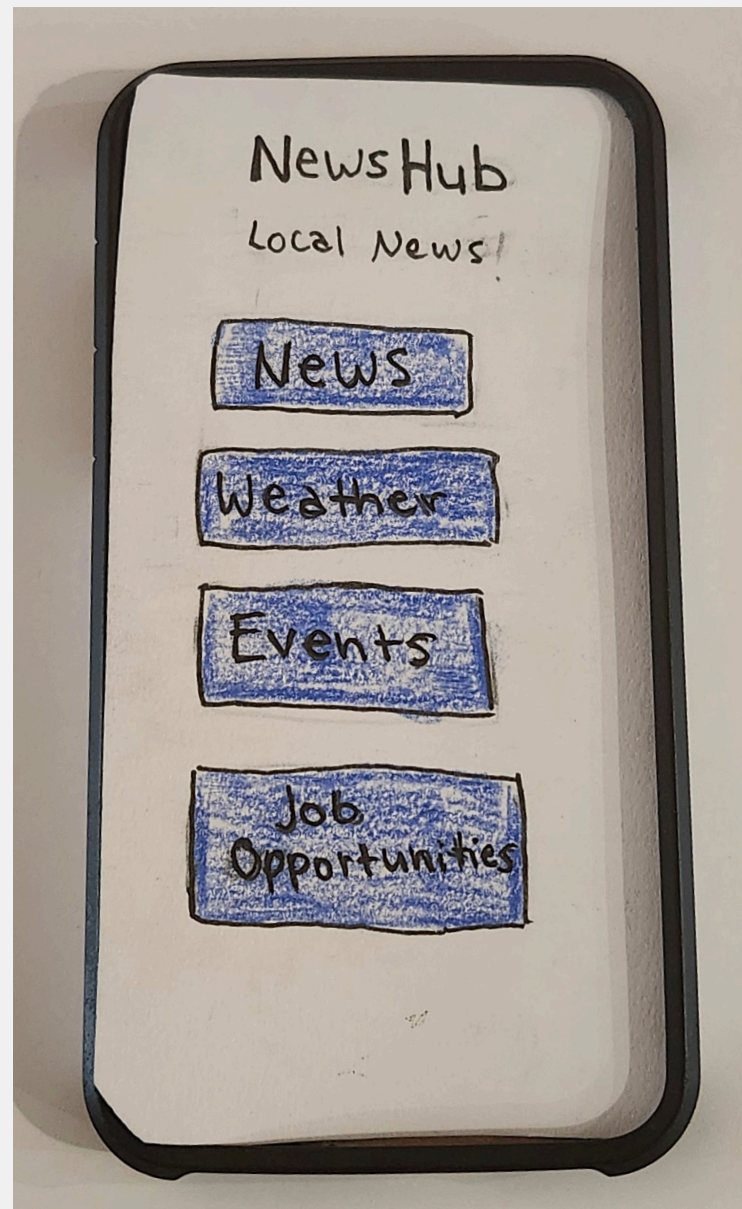 NewsHub
Local News!
News
Weather
Events
Job
Opportunities